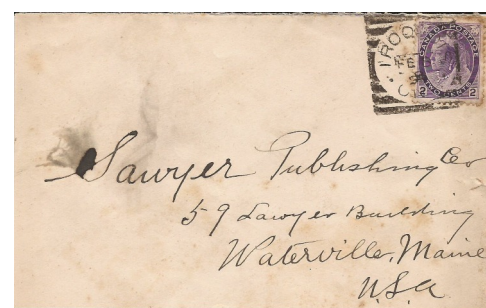 IROQ
FE
CANADA POSTAGE
2 2
TWO CENTS
Sawyer Publishing Co
59 Sawyer Building
Waterville, Maine
U.S.a